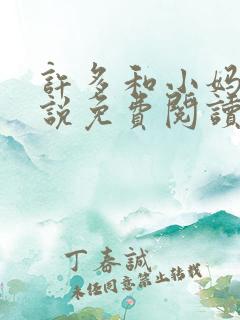 許多和小妈
説免費閱讀
丁春誠
未经同意禁止转载